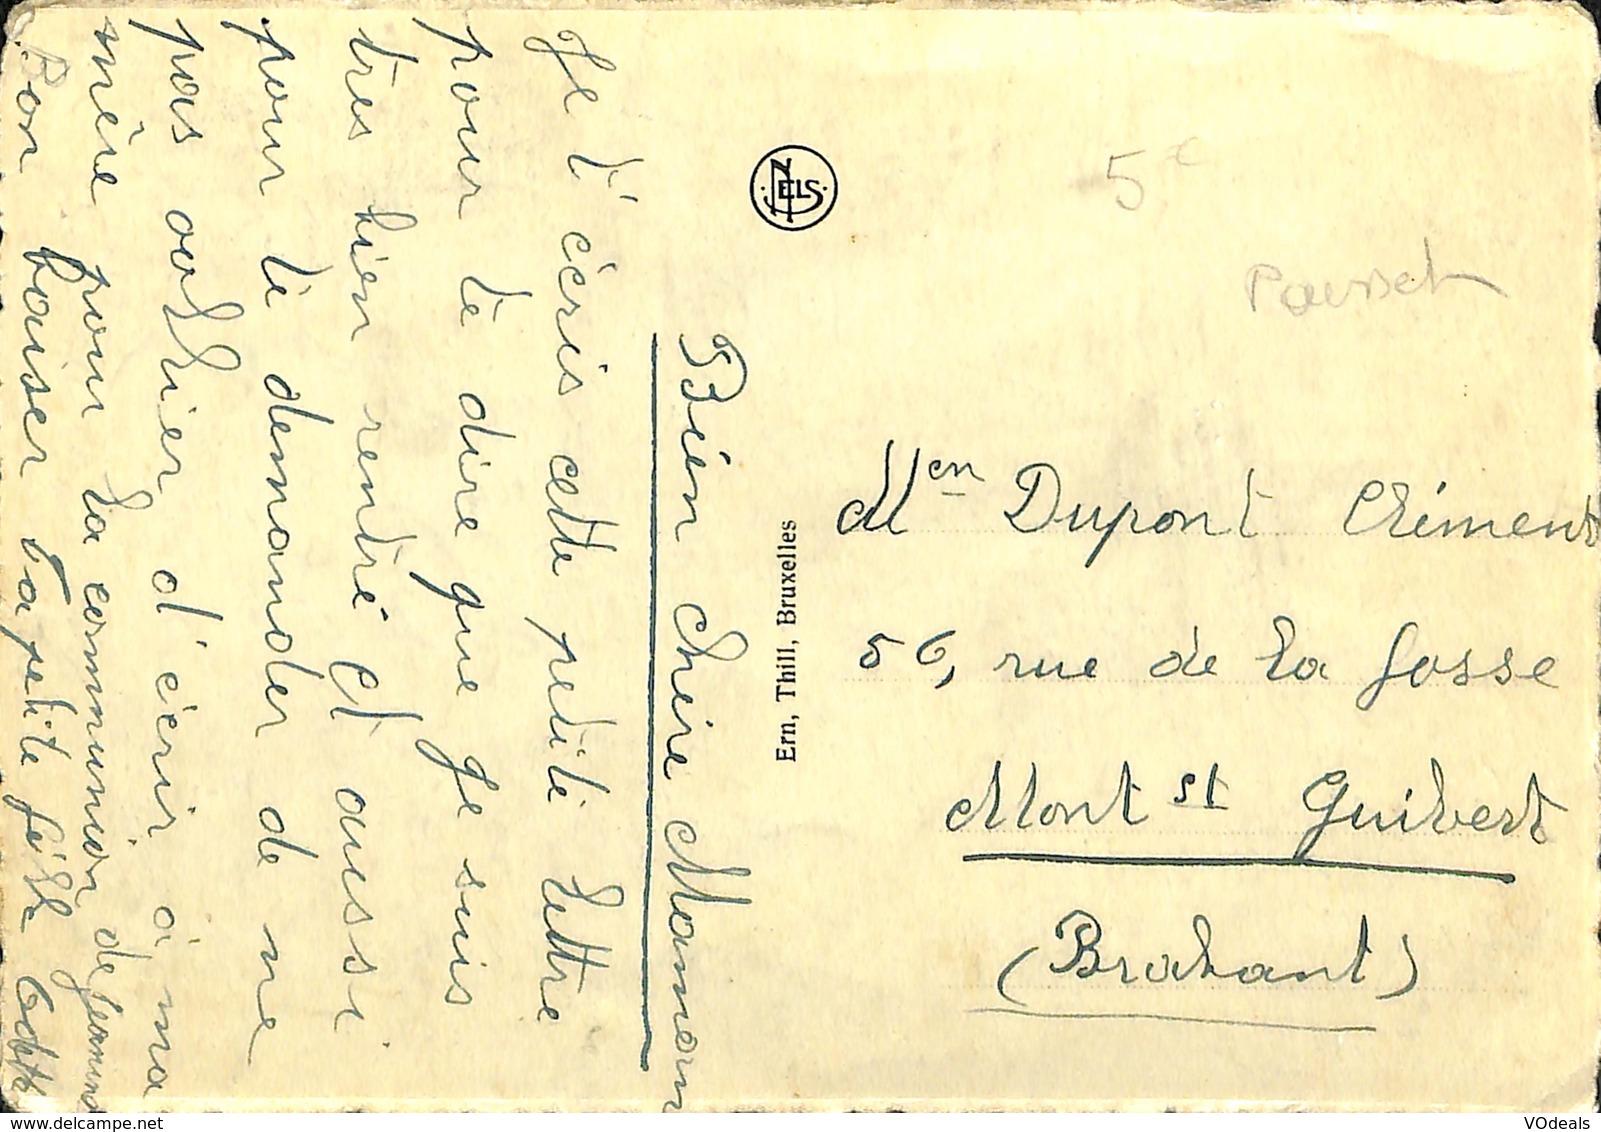 Bien chère Maman
Je t'écris cette petite lettre
pour te dire que je suis
très bien rentré et aussi
pour te demander de ne
pas oublier d'écrir à ma
mère pour la communion de
Bon baiser Ta petite fille Odette
NELS
Ern, Thill, Bruxelles
5
Mᵉⁿ Dupont Clément
56, rue de la fosse
Mont st Guibert
(Brabant)
www.delcampe.net
VOdeals